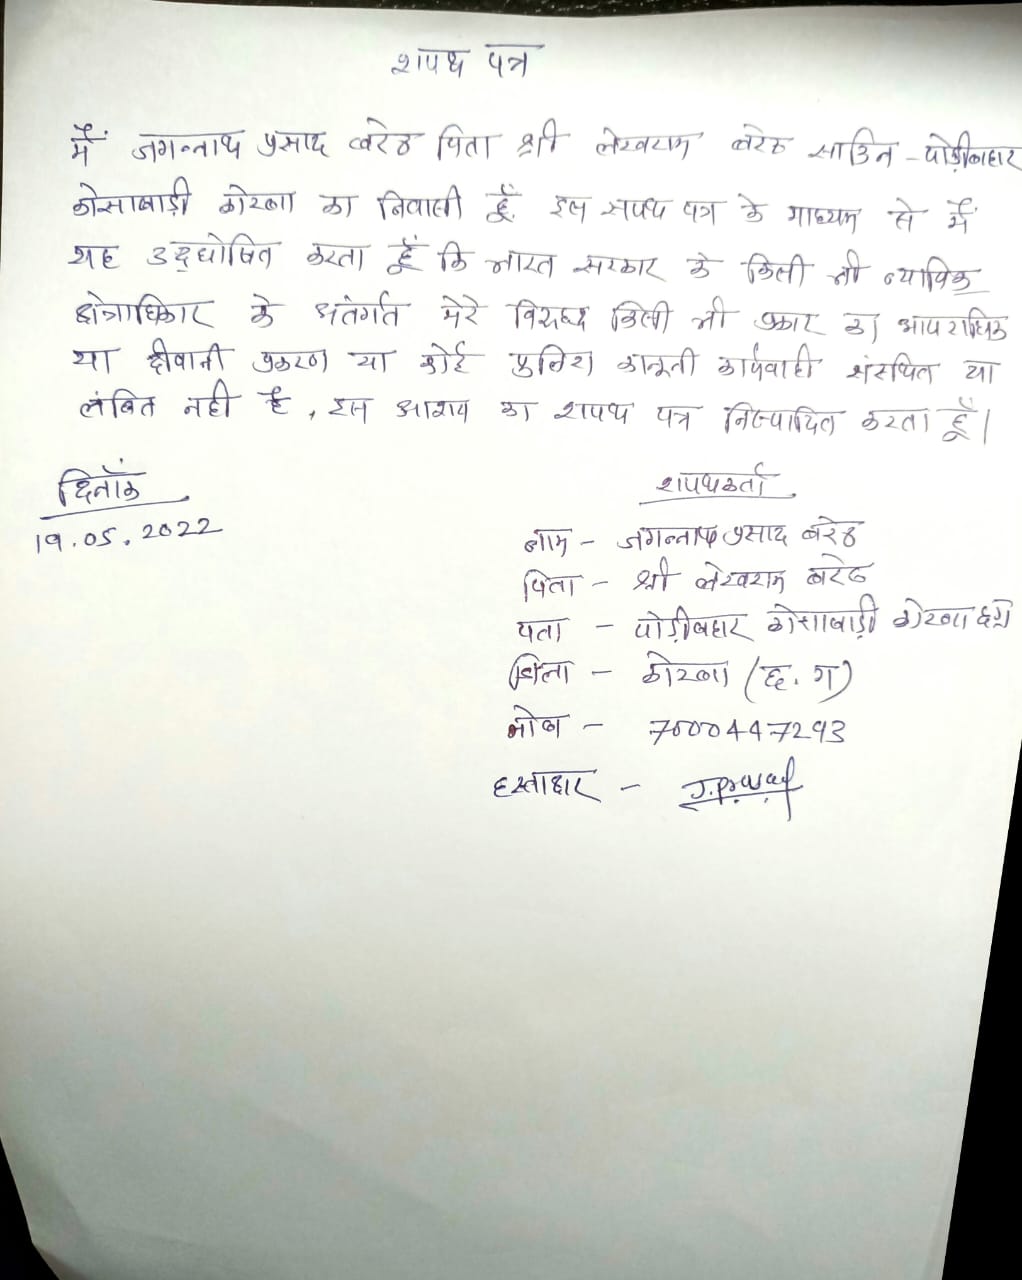 शपथ पत्र
मैं जगन्नाथ प्रसाद बरेठ पिता श्री लेखराम बरेठ साकिन - पोड़ीबहार
कोसाबाड़ी कोरबा का निवासी हूँ. इस सपथ पत्र के माध्यम से मैं
यह उद्घोषित करता हूँ कि भारत सरकार के किसी भी न्यायिक
क्षेत्राधिकार के अंतर्गत मेरे विरुद्ध किसी भी प्रकार का आपराधिक
या दीवानी प्रकरण या कोई पुलिस कानूनी कार्यवाही संस्थित या
लंबित नही है, इस आशय का शपथ पत्र निष्पादित करता हूँ।
दिनाँक
19.05.2022
शपथकर्ता
नाम - जगन्नाथ प्रसाद बरेठ
पिता - श्री लेखराम बरेठ
पता - पोड़ीबहार कोसाबाड़ी कोरबा छग
जिला - कोरबा (छ.ग)
मोब - 7000447293
हस्ताक्षर - J.prasad